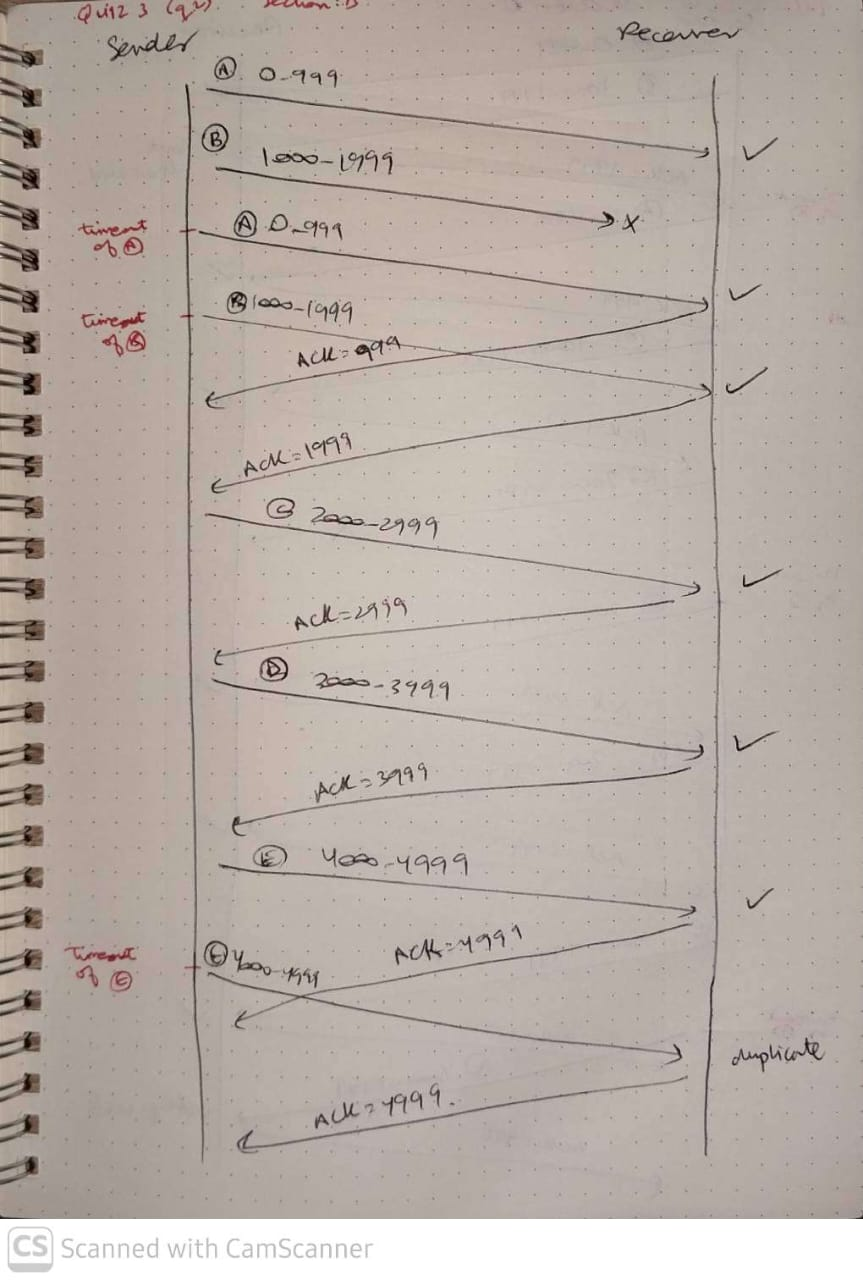 Quiz 3 (q2) Section: B
Sender
Receiver
A 0-999
✓
B
1000-1999
x
timeout
of A
A 0-999
✓
timeout
of B
B 1000-1999
ACK = 999
✓
ACK = 1999
C 2000-2999
✓
ACK = 2999
D 3000-3999
✓
ACK = 3999
E 4000-4999
✓
ACK = 4999
Timeout
of E
E 4000-4999
duplicate
ACK = 4999.
CS Scanned with CamScanner